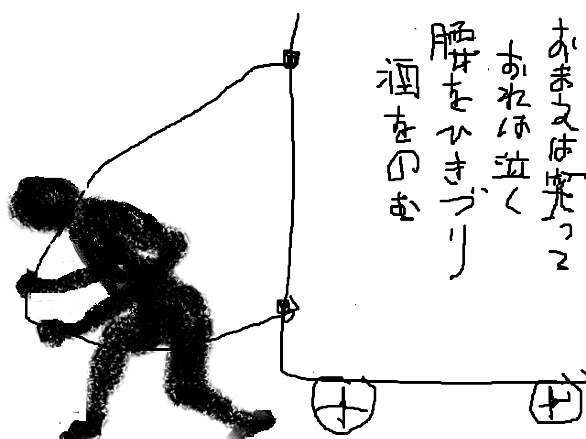 おまえは笑って
おれは泣く
腰をひきづり
酒をのむ